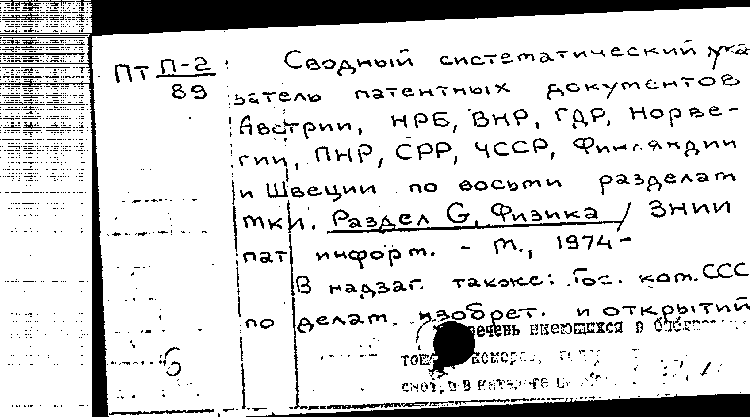 Пт П-2
89
Сводный систематический ука
затель патентных документов
Австрии, НРБ, ВНР, ГДР, Норве-
гии, ПНР, СРР, ЧССР, Финляндии
и Швеции по восьми разделам
мки. Раздел G, Физика / ЗНИИ
пат информ. - М., 1974-
В надзаг. также: Гос. ком. ССС
по делам изобрет. и открытий
речень имеющихся в
номеров,
6